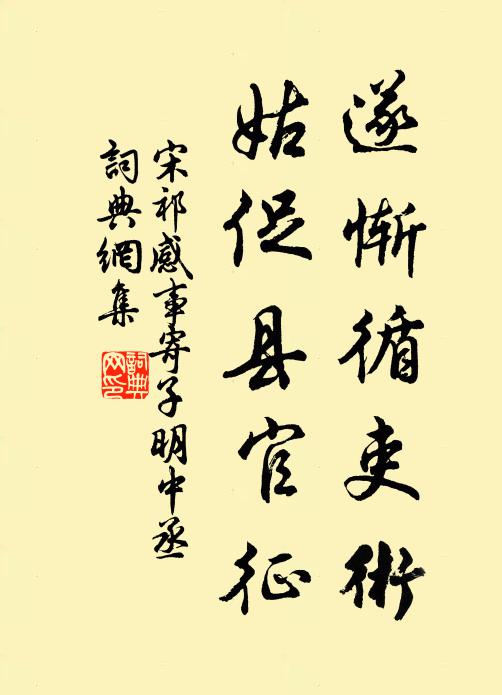 遂慚循吏術
姑促县官征
宋祁感事寄子明中丞
詞典網集
詞典
网印